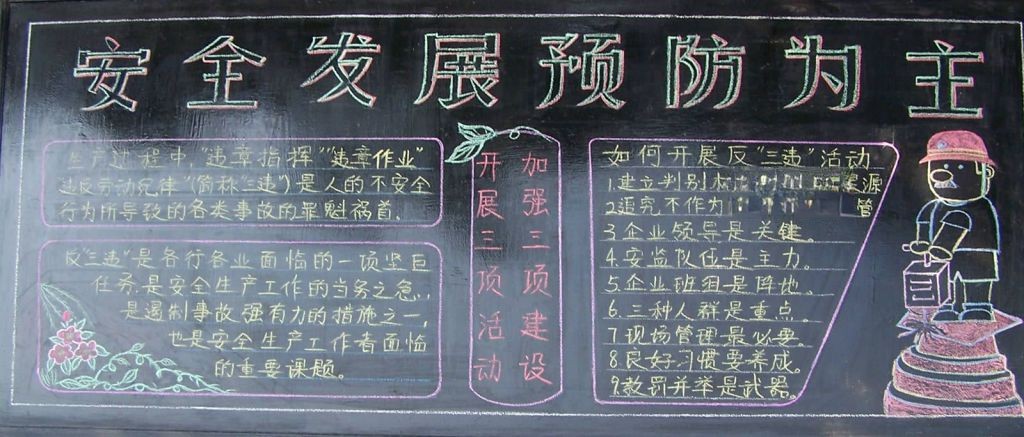 安全发展预防为主
生产过程中,"违章指挥""违章作业"
违反劳动纪律"(简称三违")是人的不安全
行为所导致的各类事故的罪魁祸首.
反"三违"是各行各业面临的一项坚巨
任务,是安全生产工作的当务之急,
是遏制事故强有力的措施之一,
也是安全生产工作者面临
的重要课题。
开展三项活动
加强三项建设
如何开展反"三违"活动
1.建立判别标 源
2追究不作为 管
3企业领导是关键。
4.安监队伍是主力。
5.企业班组是阵地。
6.三种人群是重点。
7现场管理最必要。
8良好习惯要养成。
9教罚并举是武器。